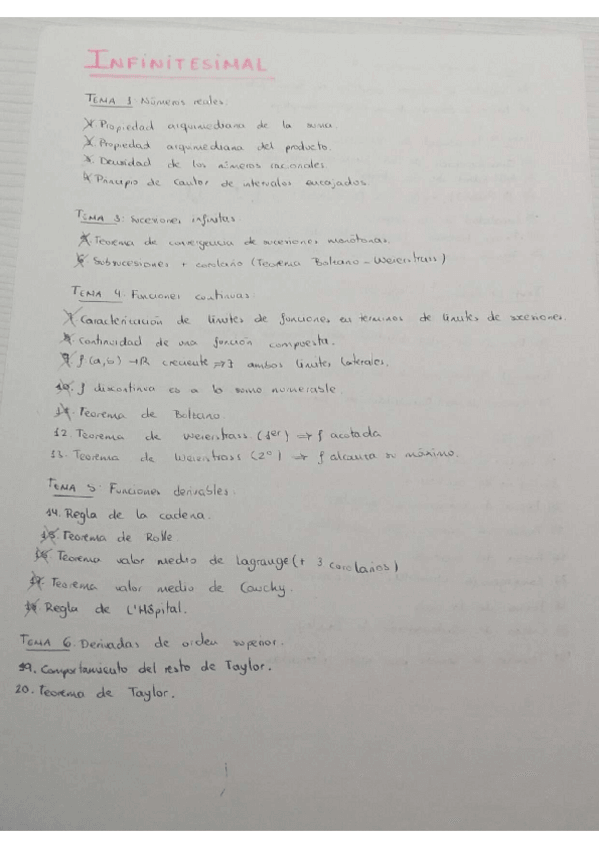 INFINITESIMAL
TEMA 1. Números reales.
1. Propiedad arquimediana de la suma.
2. Propiedad arquimediana del producto.
3. Densidad de los números racionales.
4. Principio de Cantor de intervalos encajados.
TEMA 3: sucesiones infinitas.
5. Teorema de convergencia de sucesiones monótonas.
6. Subsucesiones + corolario (Teorema Bolzano - Weierstrass)
TEMA 4. Funciones continuas.
7. Caracterización de límites de funciones en términos de límites de sucesiones.
8. Continuidad de una función compuesta.
9. f:(a,b) → R creciente ⇒ ∃ ambos límites laterales.
10. f discontinua es a lo sumo numerable.
11. Teorema de Bolzano.
12. Teorema de Weierstrass (1er) ⇒ f acotada
13. Teorema de Weierstrass (2º) ⇒ f alcanza su máximo.
TEMA 5. Funciones derivables.
14. Regla de la cadena.
15. Teorema de Rolle.
16. Teorema valor medio de Lagrange (+ 3 corolarios)
17. Teorema valor medio de Cauchy.
18. Regla de L'Hôpital.
TEMA 6. Derivadas de orden superior.
19. Comportamiento del resto de Taylor.
20. Teorema de Taylor.